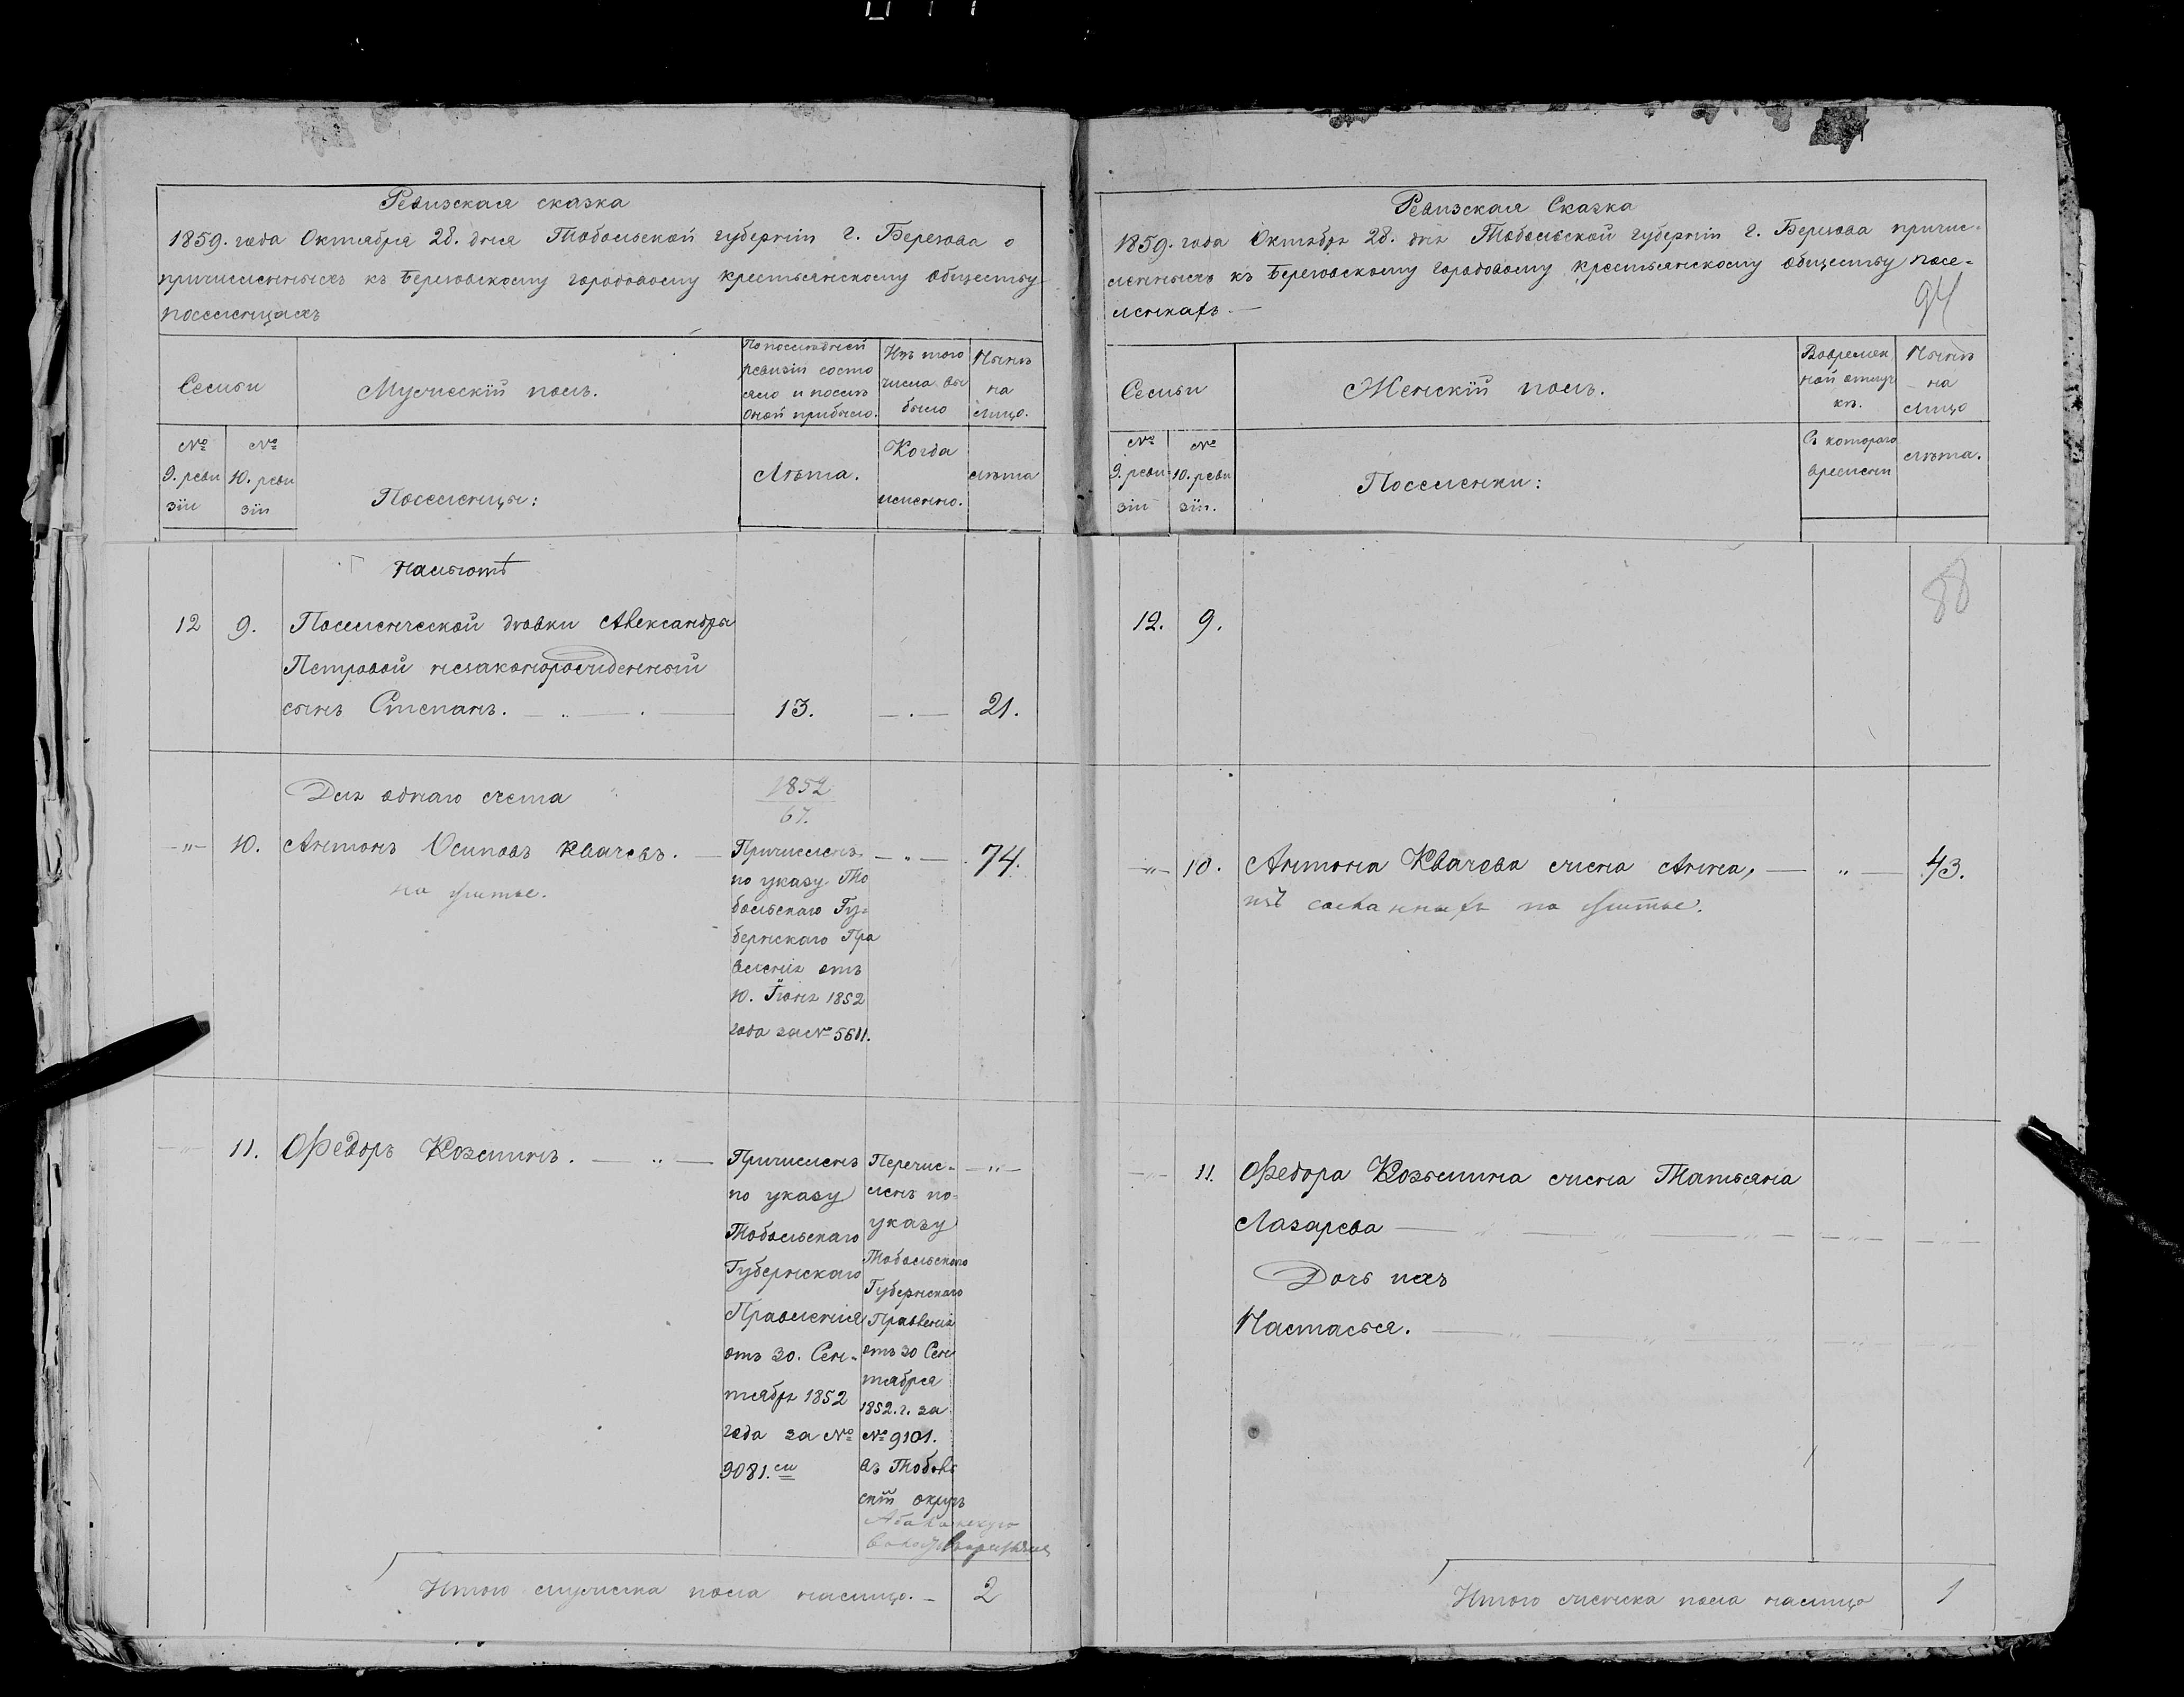 Ревизская сказка
1859. года Октября 28. дня Тобольской губернiи г. Березова о
причисленныхъ къ Березовскому городовому крестьянскому обществу
поселенцахъ
Семьи
Мужескiй полъ.
По последней
ревизiи состо
яло и после
оной прибыло.
Изъ того
числа вы
было
Ныне
на
лицо.
№
9. реви
зiи
№
10. реви
зiи
Поселенцы:
Лета.
Когда
именно.
лета
12
9.
Поселенческой девки Александры
Петровой незаконорожденный
сынъ Степанъ.
13.
21.
Для однаго счета
1852
67.
10.
Антонъ Осиповъ Квачевъ.
74.
Причисленъ
по указу То
больскаго Гу
бернскаго Пра
вленiя отъ
10. Iюня 1852
года за № 5611.
11.
Федоръ Козминъ.
Причисленъ
по указу
Тобольскаго
Губернскаго
Правленiя
отъ 30. Сен-
тября 1852
года за №
9081.
Перечис-
ленъ по
указу
Тобольскаго
Губернскаго
Правленiя
отъ 30 Сен
тября
1852. г. за
№ 9101.
въ Тоболь
скiй округъ
Итого мужеска пола налицо.
2
Ревизская Сказка
1859. года Октября 28. дня Тобольской губернiи г. Березова причис-
ленныхъ къ Березовскому городовому крестьянскому обществу посе-
ленкахъ
94
Семьи
Женскiй полъ.
Во времен
ной отлуч
ке.
Ныне
на
лицо
№
9. реви
зiи
№
10. реви
зiи.
Поселенки:
Съ котораго
времени
лета.
88
12.
9.
10.
Антона Квачева жена Анна,
43.
11.
Федора Козьмина жена Татьяна
Лазарева
Дочь ихъ
Настасья.
Итого женска пола налицо
1